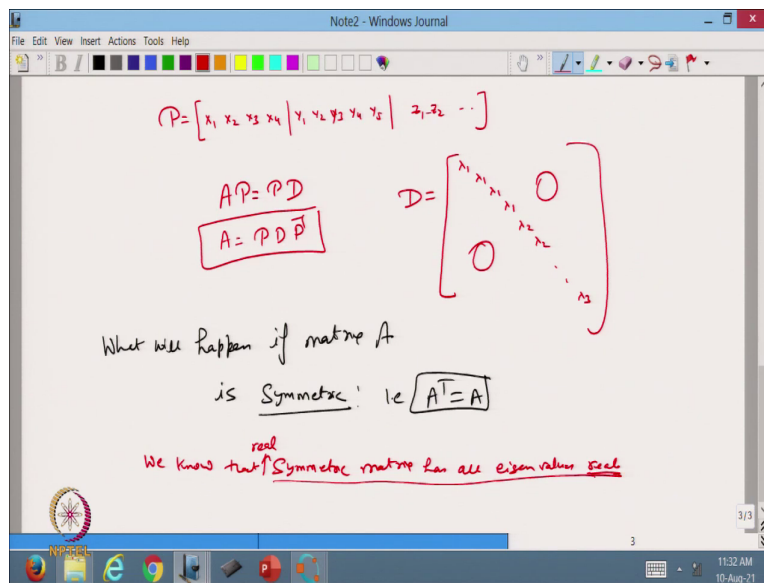 Note2 - Windows Journal
File Edit View Insert Actions Tools Help
B I
P = [x₁ x₂ x₃ x₄ | y₁ y₂ y₃ y₄ y₅ | z₁ - z₂ ··]
AP = PD
D = [λ₁ λ₁ λ₁ λ₁ λ₂ λ₂ . . λ₃ 0 0]
A = PDP⁻¹
What will happen if matrix A
is Symmetric : i.e Aᵀ = A
real
We know that ↑ Symmetric matrix has all eigen values real
NPTEL
3/3
3
11:32 AM
10-Aug-21